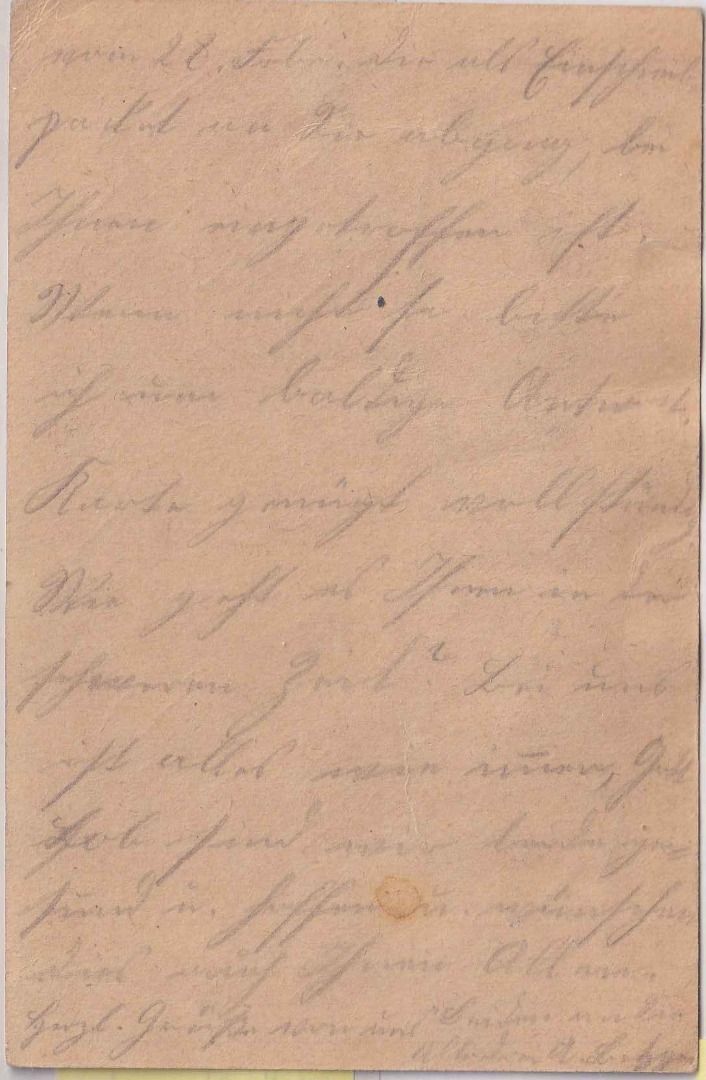 vom 28. Febr. die als Einschreib
packet an Sie abging, bei
Ihnen eingetroffen ist.
Wenn nicht so bitte
ich um baldige Antwort.
Karte genügt vollständig
Wie geht es Ihnen in der
schweren Zeit? Bei uns
ist alles wie immer, Gott
Lob sind wir beide ge-
sund u. hoffen u. wünschen
dies auch Ihnen Allen.
Herzl. Grüße von uns Beiden an Sie